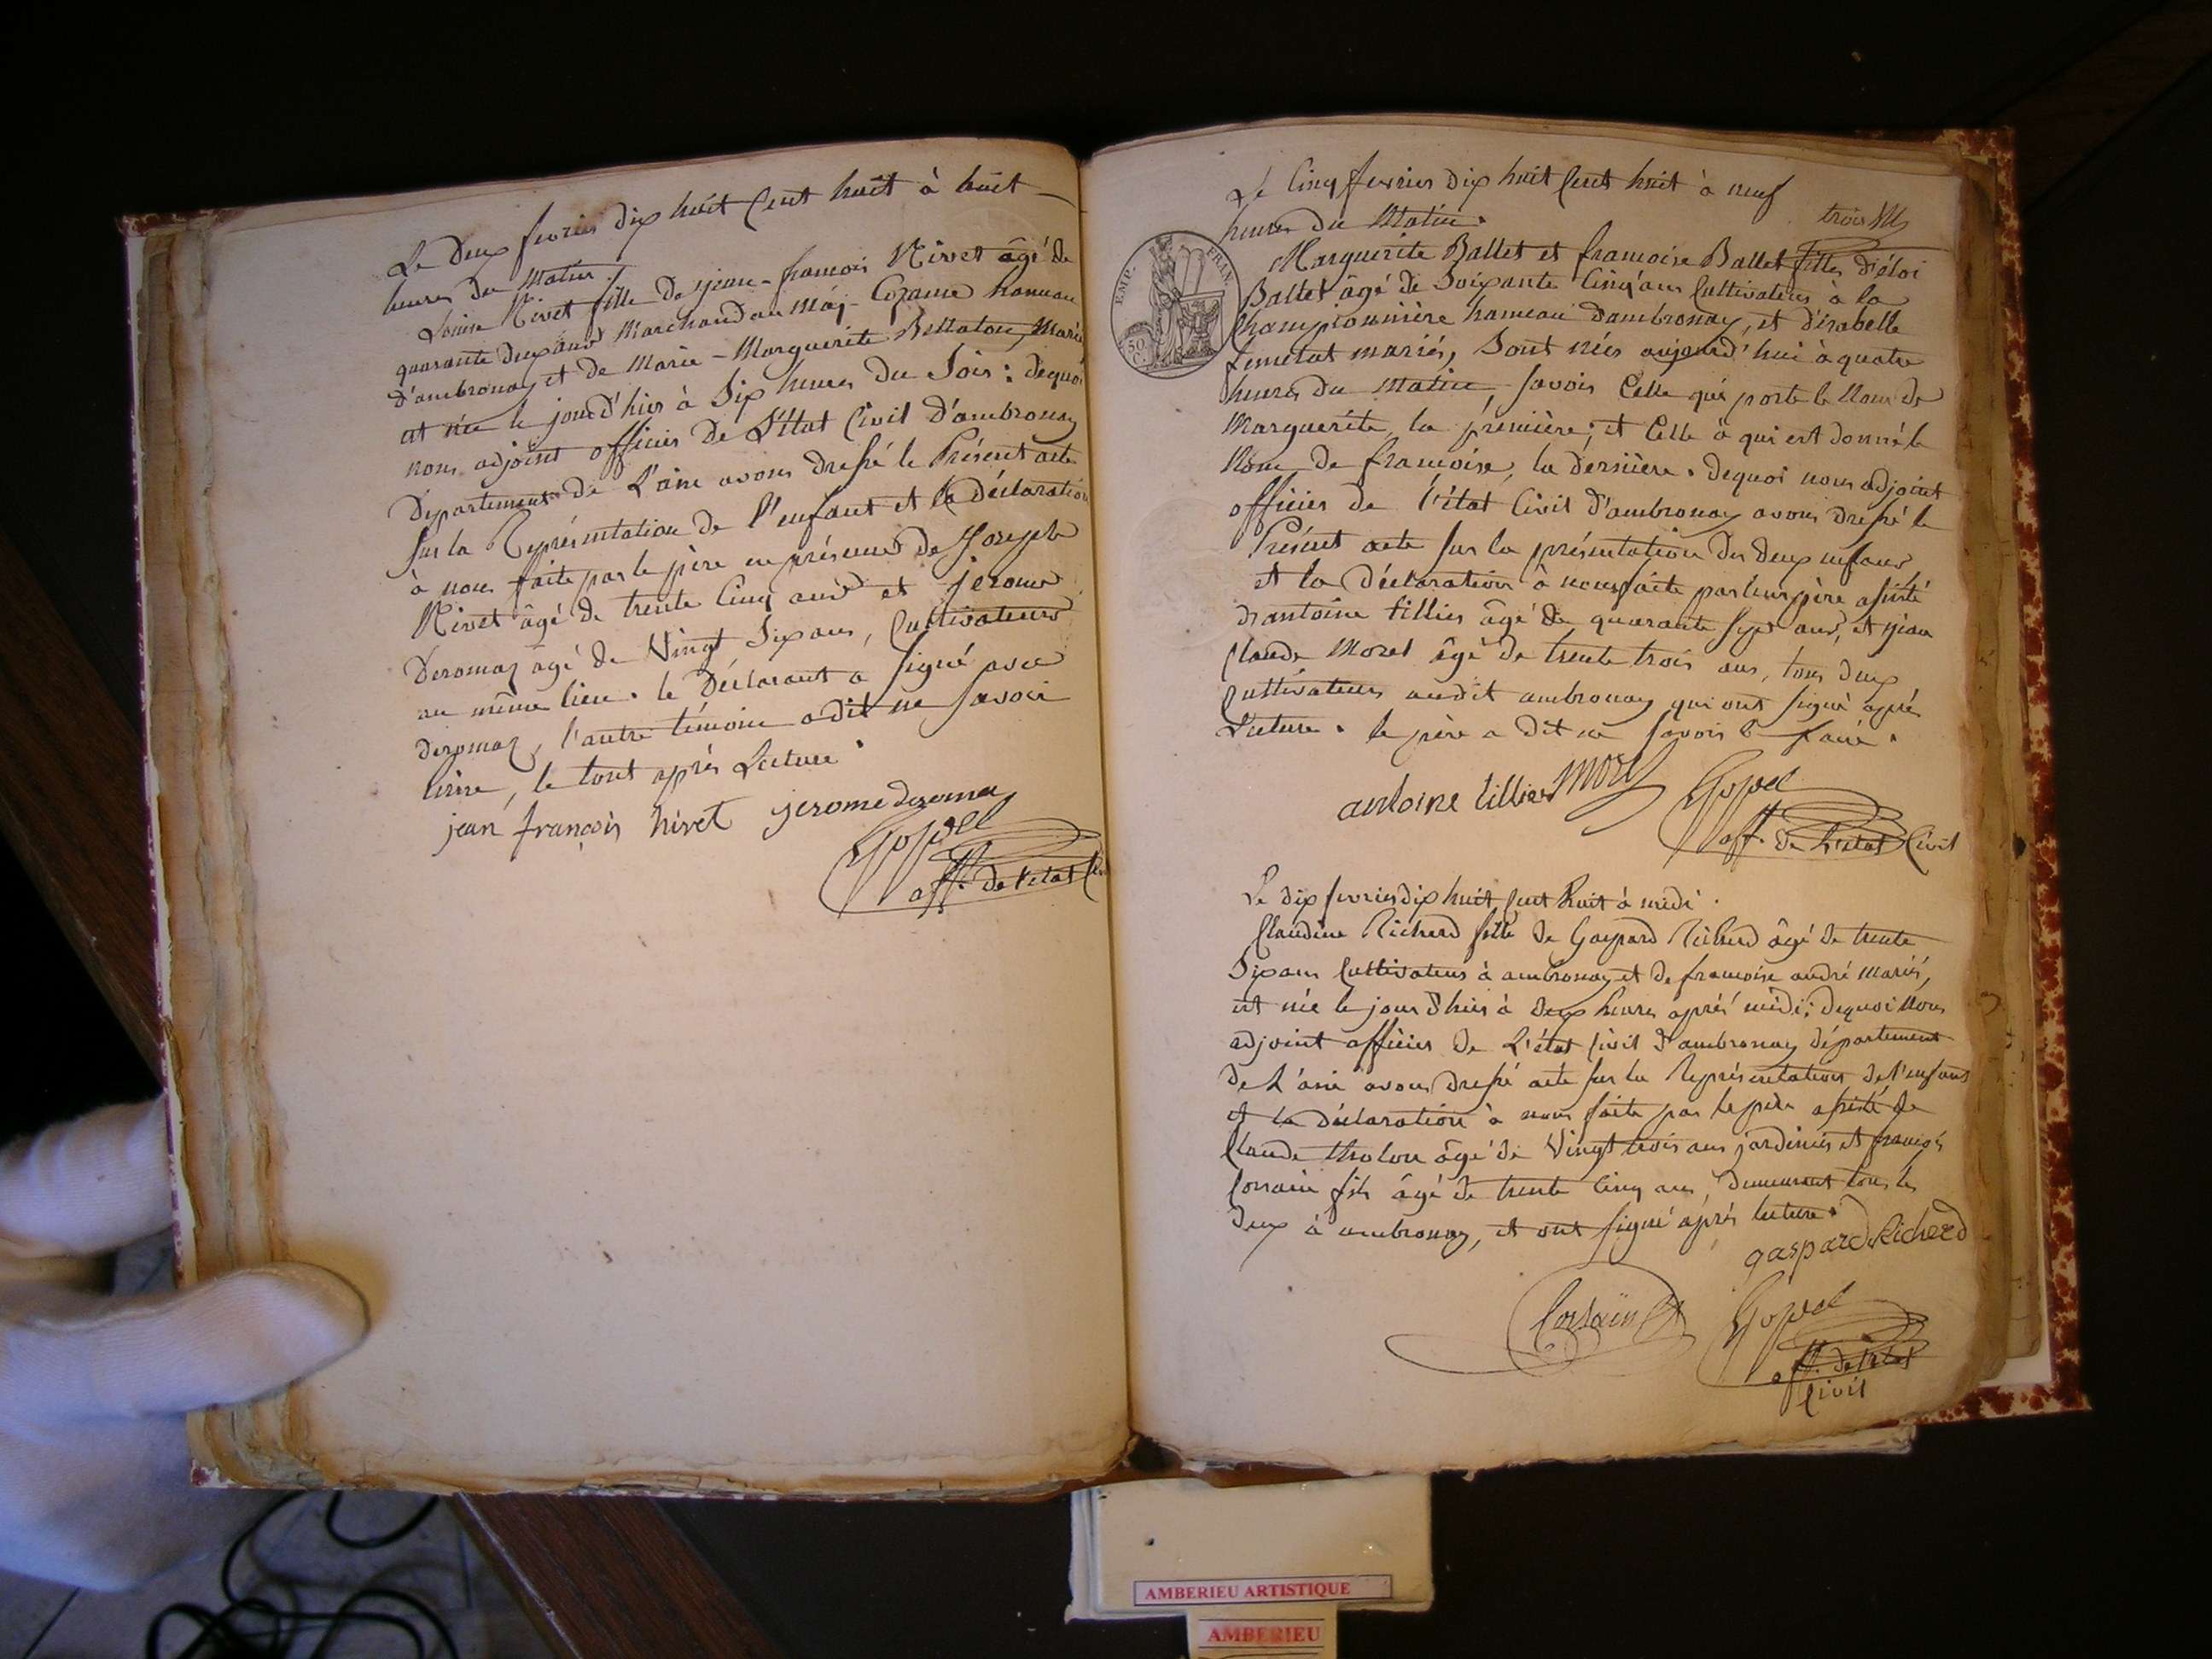 Le deux fevrier dix huit cent huit à huit
heures du matin./
Louise Nivet fille de jean-francois Nivet âgé de
quarante deux ans Marchand au maj-Cozance hameau
d'ambronay et de Marie-Marguerite Bellaton, Mariés
est née le jour d'hier à Six heures du Soir: dequoi
nous adjoint officier de L'état Civil d'ambronay
Département de L'ain avons dressé le Présent acte
sur la Représentation de l'enfant et la déclaration
à nous faite par le père en présence de Joseph
Nivet âgé de trente cinq ans et jerome
Deromaz âgé de Vingt Six ans, Cultivateurs
au même lieu. le Déclarant a signé avec
deromaz, l'autre témoin a dit ne savoir
le tout après Lecture.
jean françois nivet jerome deromaz
off. de l'etat
Le Cinq fevrier dix huit Cent huit à neuf
heures du Matin.
trois
EMP. FRAN.
50 C.
Marguerite Ballet et francoise Ballet filles d'éloi
Ballet âgé de Soixante Cinq ans Cultivateur à la
Championnière hameau d'ambronay, et d'isabelle
mariés, Sont nées aujourd'hui à quatre
heures du Matin, savoir Celle qui porte le Nom de
Marguerite la première; et Celle à qui est donné le
Nom de francoise, la dernière. dequoi nous adjoint
officier de l'état Civil d'ambronay avons dressé le
Présent acte sur la présentation des deux enfans
et la Déclaration à nous faite par leur père assisté
d'antoine tillier âgé de quarante sept ans, et jean
Claude Morel âgé de trente trois ans, tous deux
Cultivateurs audit ambronay qui ont signé après
Lecture. le père a dit ne savoir le faire.
antoine tillier Morel
off. de L'etat Civil
Le dix fevrier dix huit Cent huit à midi.
Claudine Richerd fille de Gaspard Richerd âgé de trente
Six ans Cultivateur à ambronay et de francoise andré mariés,
est née le jour d'hier à deux heures après midi; dequoi Nous
adjoint officier de L'état Civil d'ambronay département
de L'ain avons dressé acte sur la Représentation de l'enfant
et la déclaration à nous faite par le père assisté de
Claude tholon âgé de Vingt trois ans jardinier et françois
Corsain fils âgé de trente Cinq ans, demeurant tous les
deux à ambronay, et ont signé après lecture.
gaspard Richerd
Corsain
off. de l'etat
Civil
AMBERIEU ARTISTIQUE
AMBERIEU